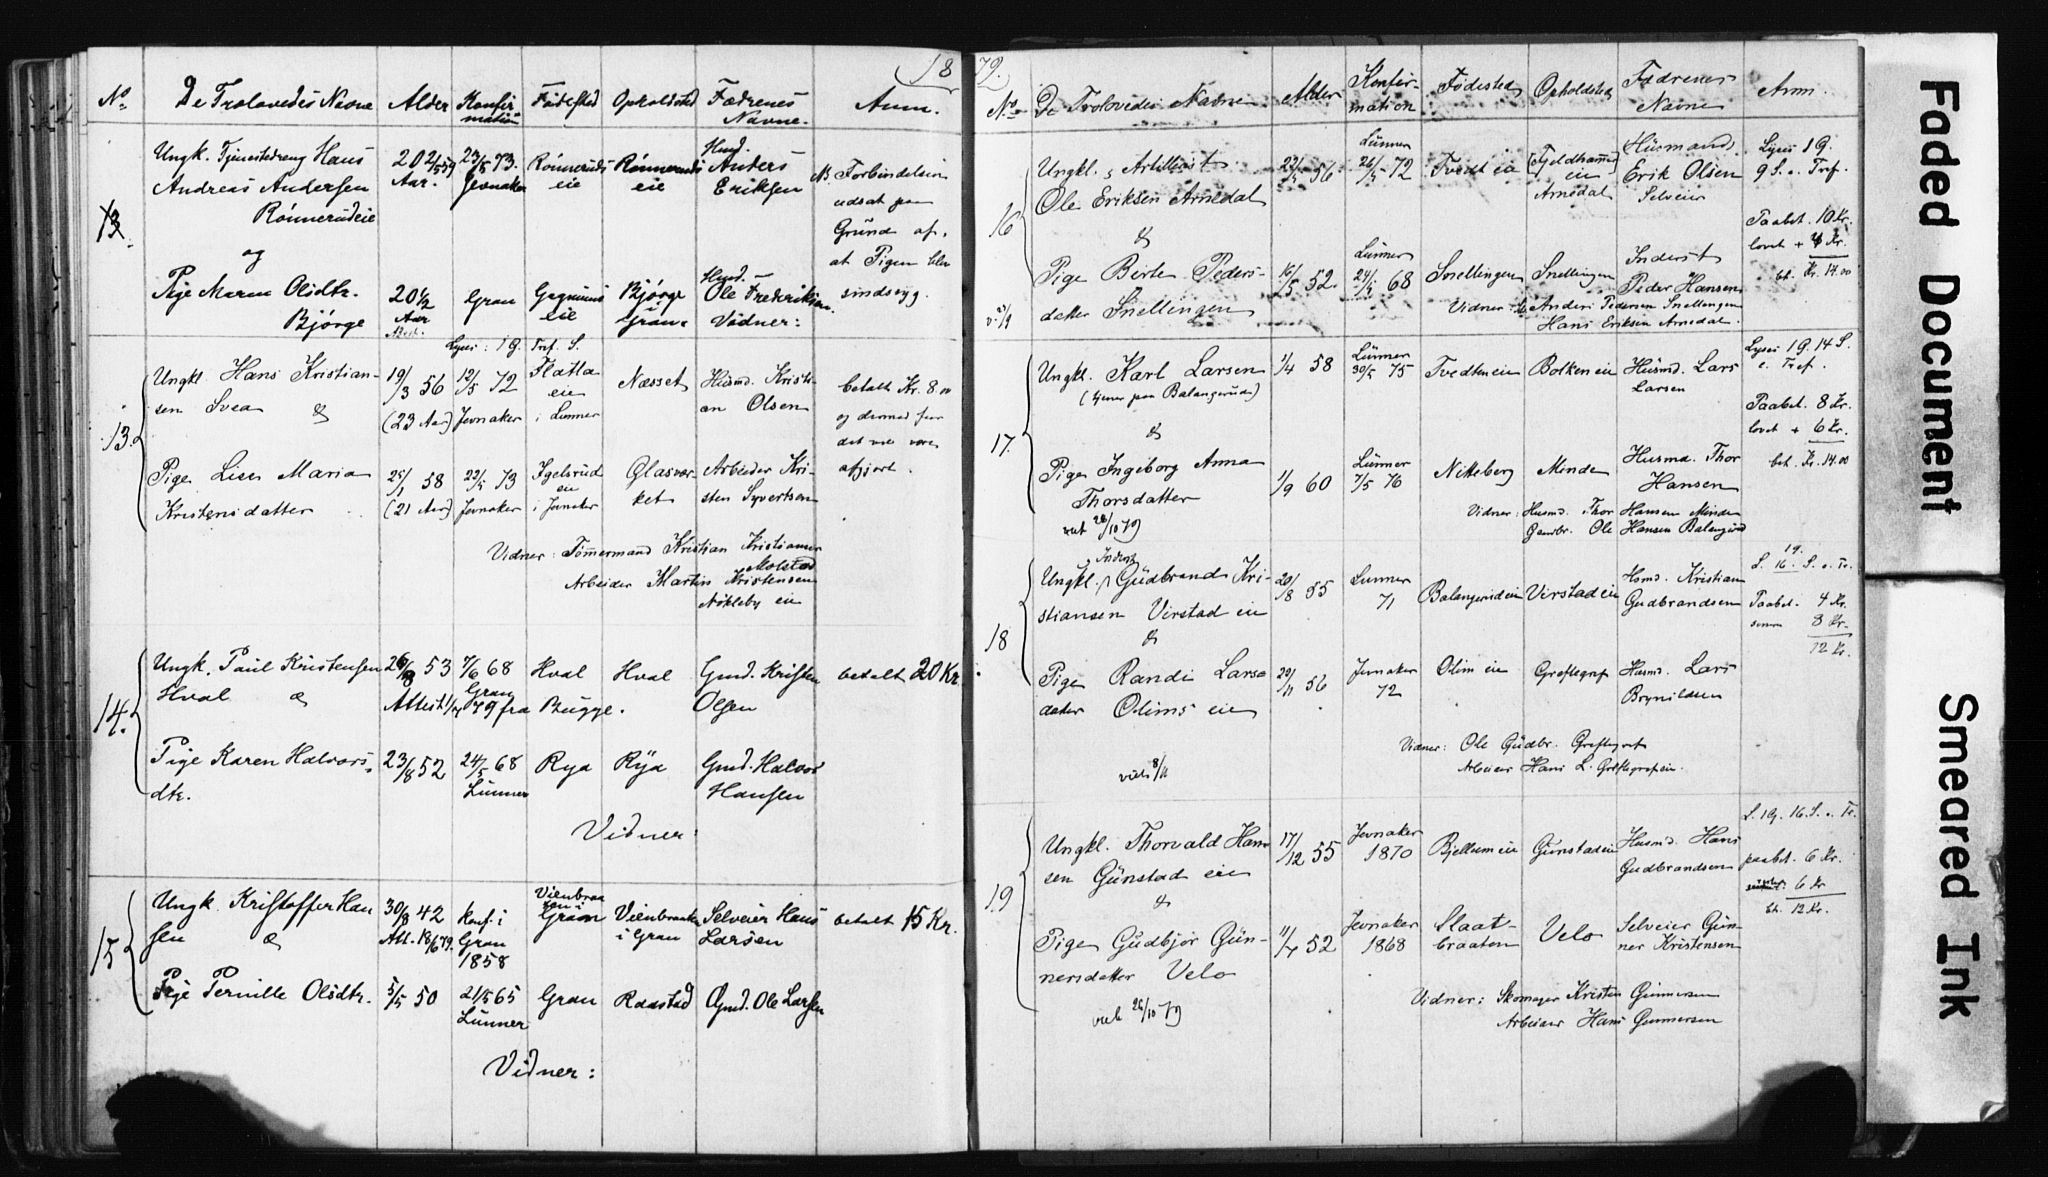 18
No De Trolovedes Navne Alder Konfirmation Fødested Opholdsted Fædrenes Navne. Anm.
Ungk. Tjenestedreng Hans 23/5 73. Rönneruds Rönneruds Husd. Anders
Andreas Andersen Aar. Jevnaker eie eie Eriksen
Rönnerudeie
Forbindelsen
udsat paa
Grund af,
at Pigen blev
sindssyg.
og
Pige Maren Olsdtr. 20½ Gran Bjørge Husd. Ole Frederiksen
Bjørge Aar eie Gran. Vidner:
Lyses: 19. Tref. S.
13.
Ungkl Hans Kristian- 19/3 56 12/5 72 Flatla Næsset Husmd. Kristi-
sen Svea & (23 Aar) Jevnaker eie i Lunner an Olsen
betalt Kr. 8
og dermed faar
det vel være
afgjort.
Pige Lise Maria 58 73 Glasvær- Arbeider Kri-
Kristensdatter (21 Aar) Jevnaker eie i Jevnaker ket sten Syvertsen
Vidner: Tömmermand Kristian Kristiansen
Molstad
Arbeider Martin Kristensen
Nökleby eie
14.
Ungk. Paul Kristensen 53 7/6 68 Hval Hval Gmd. Kristen betalt 20 Kr.
Hval & Attest 79 fra Gran Bugge. Olsen
Pige Karen Halvors- 23/8 52 24/5 68 Rya Rya Gmd. Halvor
dtr. Lunner Hansen
Vidner:
15
Ungk. Kristoffer Han 30/8 42 Konf. i Gran Vienbraaten Selveier Hans betalt 15 Kr.
sen & Att. 18/6 79. Gran i Gran Larsen
1858
Pige Pernille Olsdtr. 5/5 50 21/5 65 Gran Raastad Gmd. Ole Larsen
Lunner
Vidner:
79.
No De Trolovedes Navne Alder Konfirmation Fødested Opholdsted Fædrenes Navne Anm.
16
Ungkl., Artillerist 22/5 56 Lunner 26/5 72 Tvedteie Husmand. Lyses 19.
Ole Eriksen Arnedal Arnedal Erik Olsen 9 S. e. Tref.
Selveier
& Paabet. 10 Kr.
lovet + 4 Kr.
Pige Berte Peders- 16/5 52. Lunner 24/5 68 Snellingen Snellingen Inderst bt. Kr. 14.00
datter Snellingen Peder Hansen
Vidner: Anders Pedersen Snellingen
Hans Eriksen Arnedal.
17.
Ungkl. Karl Larsen 1/4 58 Lunner 30/5 75 Tvedteneie Bolkeneie Husmd. Lars Lyses 19. 14 S.
(tjener paa Balangerud) Larsen e. Tref.
& Paabet. 8 Kr.
lovet + 6 Kr.
Pige Ingeborg Anna 1/9 60 Lunner 7/5 76 Nitteberg Minde Husmd. Thor bet. Kr. 14.00
Thorsdatter Hansen
viet 26/10 79
Vidner: Husmd. Thor Hansen Minde
Gaardbr. Ole Hansen Balangerud
18
Inderst
Ungkl. Gudbrand Kri- 20/8 55 Lunner Balangerudeie Virstadeie Hsmd. Kristian 16. S. e. Tr.
stiansen Virstad eie 71 Gudbrandsen Paabet. 4 Kr.
& senere 8 Kr.
12 Kr.
Pige Randi Lars 56 Jevnaker Olim eie Greftegref Husmd. Lars
datter Olims eie 72 Brynildsen
Vidner: Ole Gudbr. Greftegref
Arbeider Hans L. Greftegrefeie.
viet 8/11
19
Ungkl. Thorvald Han- 17/12 55 Jevnaker Bjellumeie Gunstadeie Husmd. Hans L. 19. 16. S. e. Tr.
sen Gunstad eie 1870 Gudbrandsen paabet. 6 Kr.
& 6 Kr
bt. 12 Kr.
Pige Gudbjør Gun- 52 Jevnaker Slaat- Velo Selveier Gun-
nersdatter Velo 1868 braaten ner Kristensen
viet 26/10 79
Vidner: Skomager Kristen Gunnersen
Arbeider Hans Gunnersen
Faded Document
Smeared Ink